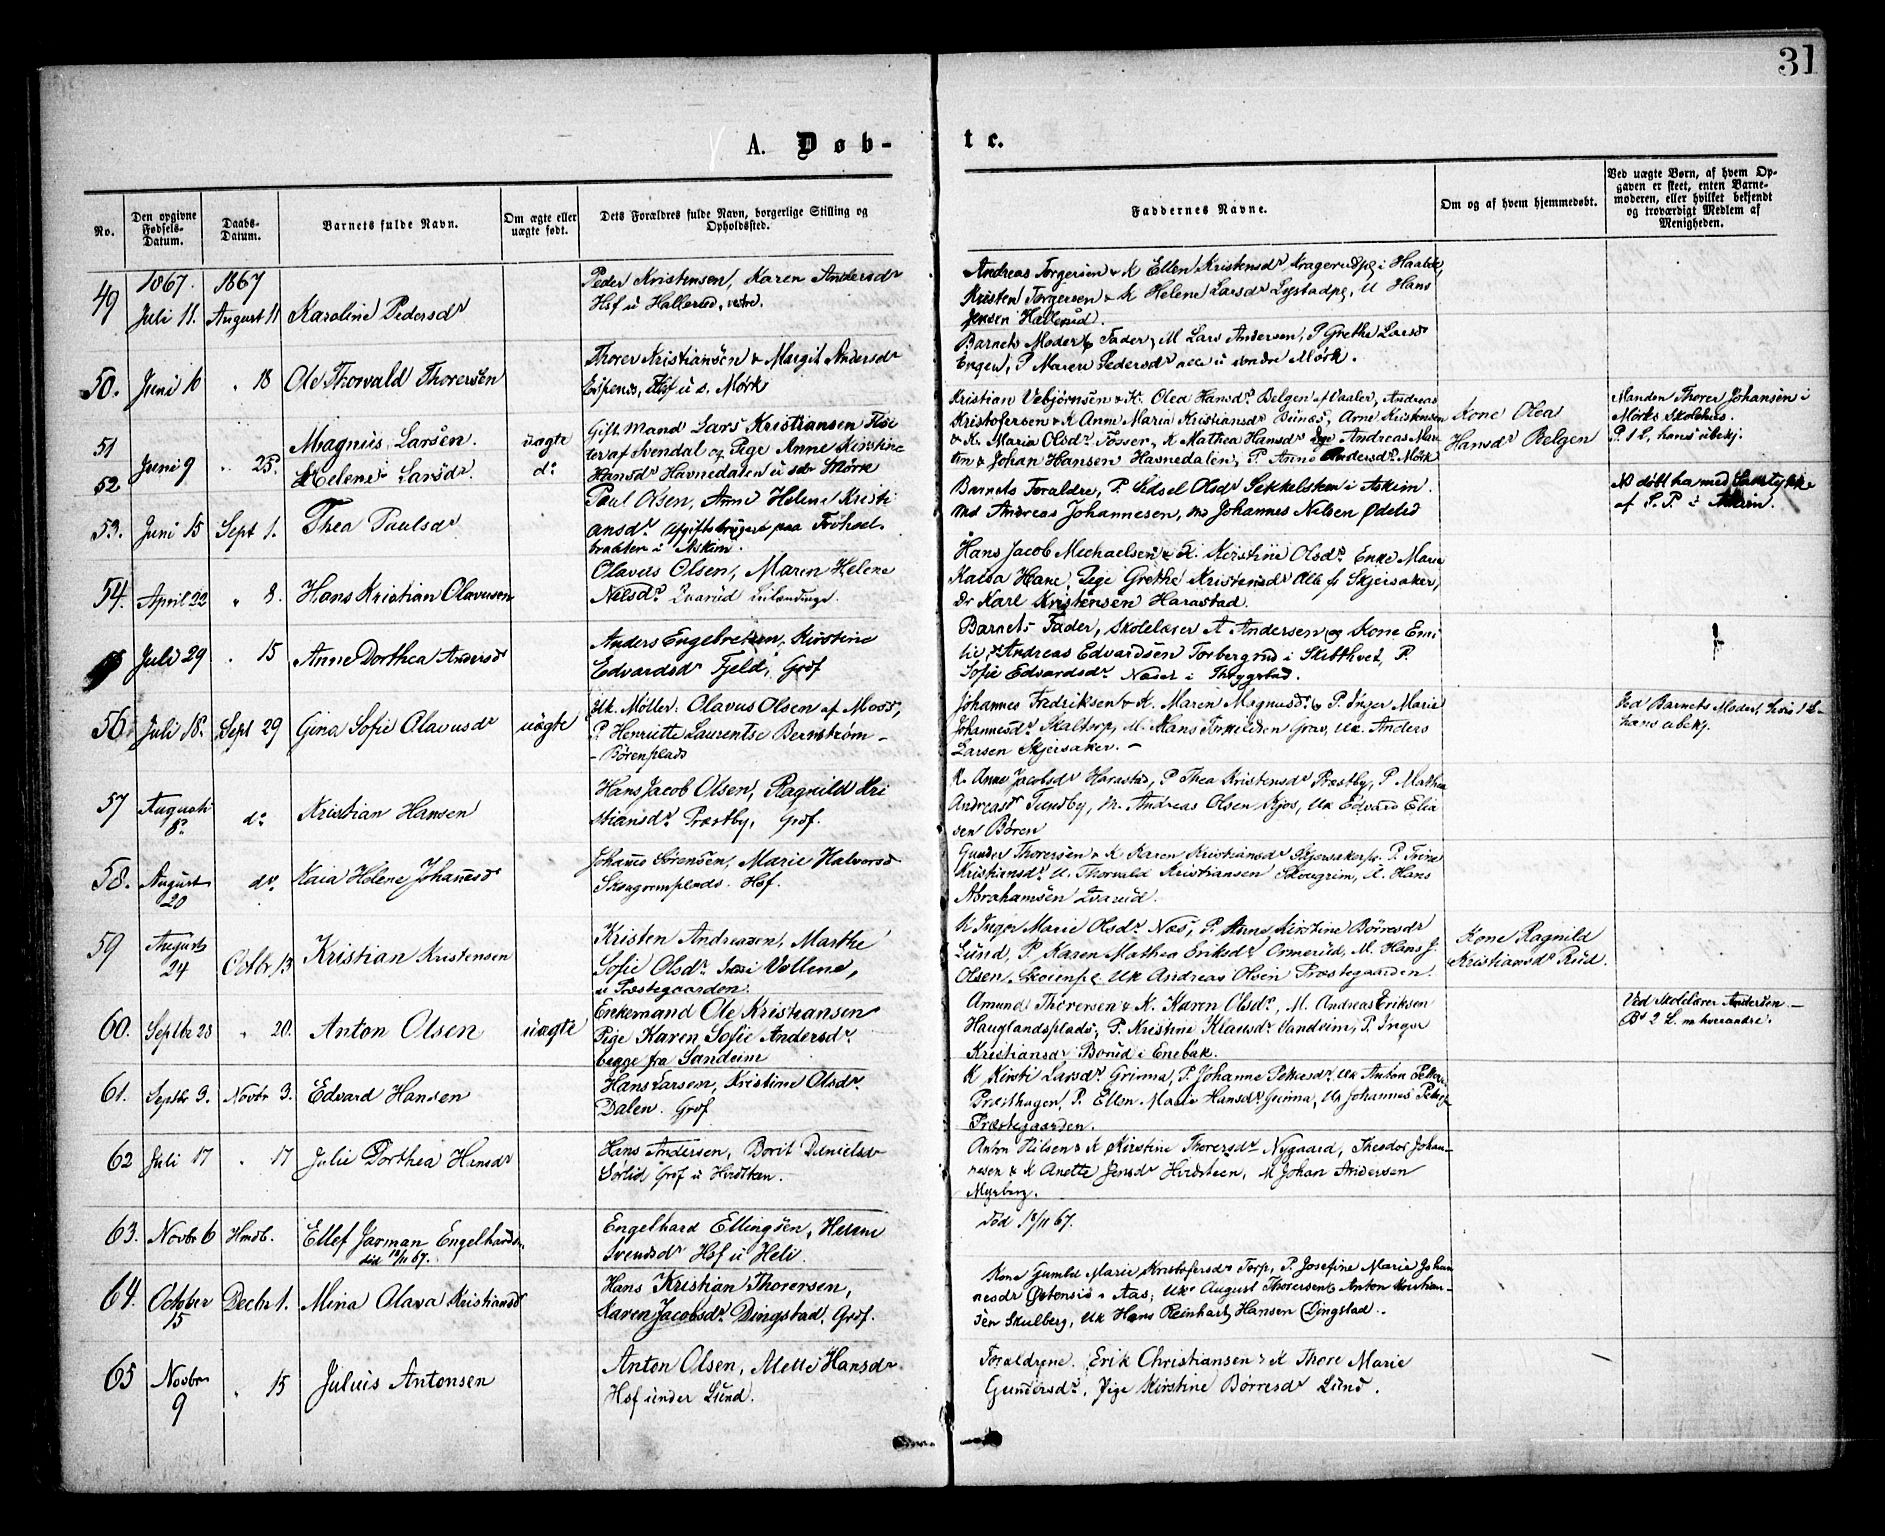 31
A. Døb-
te.
No.
Den opgivne
Fødsels-
Datum.
Daabs-
Datum.
Barnets fulde Navn.
Om ægte eller
uægte født.
Dets Forældres fulde Navn, borgerlige Stilling og
Opholdssted.
Faddernes Navne.
Om og af hvem hjemmedøbt.
Ved uægte Børn, af hvem Op-
gaven er skeet, enten Barne-
moderen, eller hvilket bekjendt
og troværdigt Medlem af
Menigheden.
49
1867.
Juli 11.
1867
August 11
Karoline Pedersdr
Peder Kristensen, Karen Andersdr
Hsf u Hallerud, vestre.
Andreas Torgersen & K Ellen Kristensdr, Kragerudpl i
Kristen Torgersen & K Helene Larsdr Lystadpl, U Hans
Jensen Hallerud.
50.
Juni 16
" 18
Ole Thorvald Thorersen
Thorer Kristiansen & Margit Andersdr
Espenes, Hsf u s. Mørk
Barnets Moder & Fader, M Lars Andersen, P Grethe Larsdr
Engen, P Maren Pedersdr alle u søndre Mørk.
51
52
Juni 9
" 25.
Magnus Larsen.
Helene Larsdr.
uægte
do
Gift Mand Lars Kristiansen
af Svendal og Pige Anne Kirstine
Hansdr Havnedalen u sdr Mørk
Kristian Vebjørnsen & K. Olea Hansdr Belgen af Vaaler, Andreas
Kristofersen & K Anne Maria Kristiansdr Bunæs, Arne Kristensen
& K. Maria Olsdr Fosser, K Mathea Hansdr Andreas Mar-
tin & Johan Hansen Havnedalen, P. Anne Andersdr Mørk
Kone Olea
Hansdr Belgen
Manden Thorer Johansen i
Mørks Skolehus.
P. 1 L, hans ubekj.
53.
Juni 15
Sept 1.
Thea Paulsdr
Paul Olsen, Anne Helene Kristi
ansdr. paa
i Askim.
Barnets Foraldre, P. Sidsel Olsdr Sekkelsten i Askim.
Andreas Johannesen, Johannes Nilsen Ødelid
NB døbt her med Samtykke
af S. P. i Askim.
54.
April 22
" 8.
Hans Kristian Olavusen
Olavus Olsen, Maren Helene
Nelsdr. Tvarud Leilændinge.
Hans Jacob Michaelsen & K. Kirstine Olsdr. Enke Marie
Kaisa Hane, Pige Grethe Kristensdr alle fr Skjersaker,
Dr Karl Kristensen Harastad.
Juli 29
" 15
Anne Dorthea Andersdr
Anders Engebretsen, Kirstine
Edvardsdr Fjeld, Grdf
Barnets Fader, Skolelærer A Andersen og Kone Emi
lie, Andreas Edvardsen Torbergrud i Skibthvet, P.
Sofie Edvardsdr. Næset i Thrygstad.
56
Juli 18.
Sept 29
Gina Sofie Olavusdr
uægte
Uk. Møller. Olavus Olsen af Moss,
P. Henriette Laurentse Bernstrøm –
– Børenplads
Johannes Fredriksen & K. Maren Magnusdr. & P. Inger Marie
Johannesdr. Skaltorp, M. Hans Grav, Uk. Anders
Larsen Skjersaker. –
Ved Barnets Moder,
hans ubekj.
57
August
8.
do
Kristian Hansen
Hans Jacob Olsen, Ragnild Kri
stiansdr. Præstby, Grdf.
K. Anne Jacobsdr Harastad, P Thea Kristensdr Præstby, P Mathea
Andreasdr Sundby, M. Andreas Olsen Kjos, Uk Edvard Elia
sen Børen
58.
August
20
do.
Kaia Helene Johannesdr
Johannes Sørensen, Marie Halvorsdr
Skougrimplads. Hsf.
Gunder Thorersen & K Karen Kristiansdr Skjersakerpl. P. Trine
Kristiansdr. U. Thorvald Kristiansen Skougrim, U. Hans
Abrahamsen Tvarud.
59
August
24
Octbr 13
Kristian Kristensen
Kristen Andreasen, Marthe
Sofie Olsdr. Vollene,
u Præstegaarden.
U Inger Marie Olsdr Næs, P. Anne Kirstine Børresdr
Lund, P Karen Mathea Eriksdr Ormerud, M. Hans J.
Olsen, Skoienpl Uk Andreas Olsen Præstegaarden.
Kone Ragnild
Kristiansdr Rud.
60.
Septbr 28
" 20.
Anton Olsen
uægte
Enkemand Ole Kristiansen
Pige Karen Sofie Andersdr.
begge fra Sandeim
Amund Thorersen & K. Karen Olsdr, M. Andreas Eriksen
Hauglandsplads, P. Kristine Klausdr Vandeim, P. Inger
Kristiansdr Borud i Enebak.
Ved Skolelærer Andersen –
2 L. m hverandre.
61.
Septbr 3.
Novbr 3.
Edvard Hansen
Hans Larsen, Kristine Olsdr.
Dalen. Grdf
K Kirsti Larsdr. Grinna, P. Johanne Pettersdr. Uk Anton Petters
Præsthagen, P. Ellen Marie Hansdr. Grinna, Uk Johannes
Præstegaarden.
62
Juli 17
" 17
Julie Dorthea Hansdr
Hans Andersen, Borit Danielsdr
Sørlid Grdf u Hvidsten.
Anton Nilsen & K Kirstine Thorersdr Nygaard, Theodor Johan-
nesen & K Anette Jensdr Hvidsteen, M Johan Andersen
Myrberg.
63.
Novbr 6
Hmdb.
Ellef Jarman Engelhardsen,
død 18/11 67.
Engelhard Ellingsen, Helene
Svendsdr Hsf u Heli.
død 18/11 67.
64.
October
15
Decbr 1.
Mina Olava Kristiansdr
Hans Kristian Thorersen,
Karen Jacobsdr. Dingstad. Grdf.
Kone Gunild Marie Kristofersdr Torp, P. Josefine Marie Johan
nesdr Østensio i Aas, Uk August Thorersen & Anton Kristian-
sen Skulberg, Uk Hans Reinhart Hansen Dingstad.
65
Novbr
9
" 15
Julius Antonsen
Anton Olsen, Mette Hansdr
Hsf under Lund.
Foraldrene. Erik Christiansen & K Thore Marie
Gundersdr. Pige Kirstine Børresdr Lund.